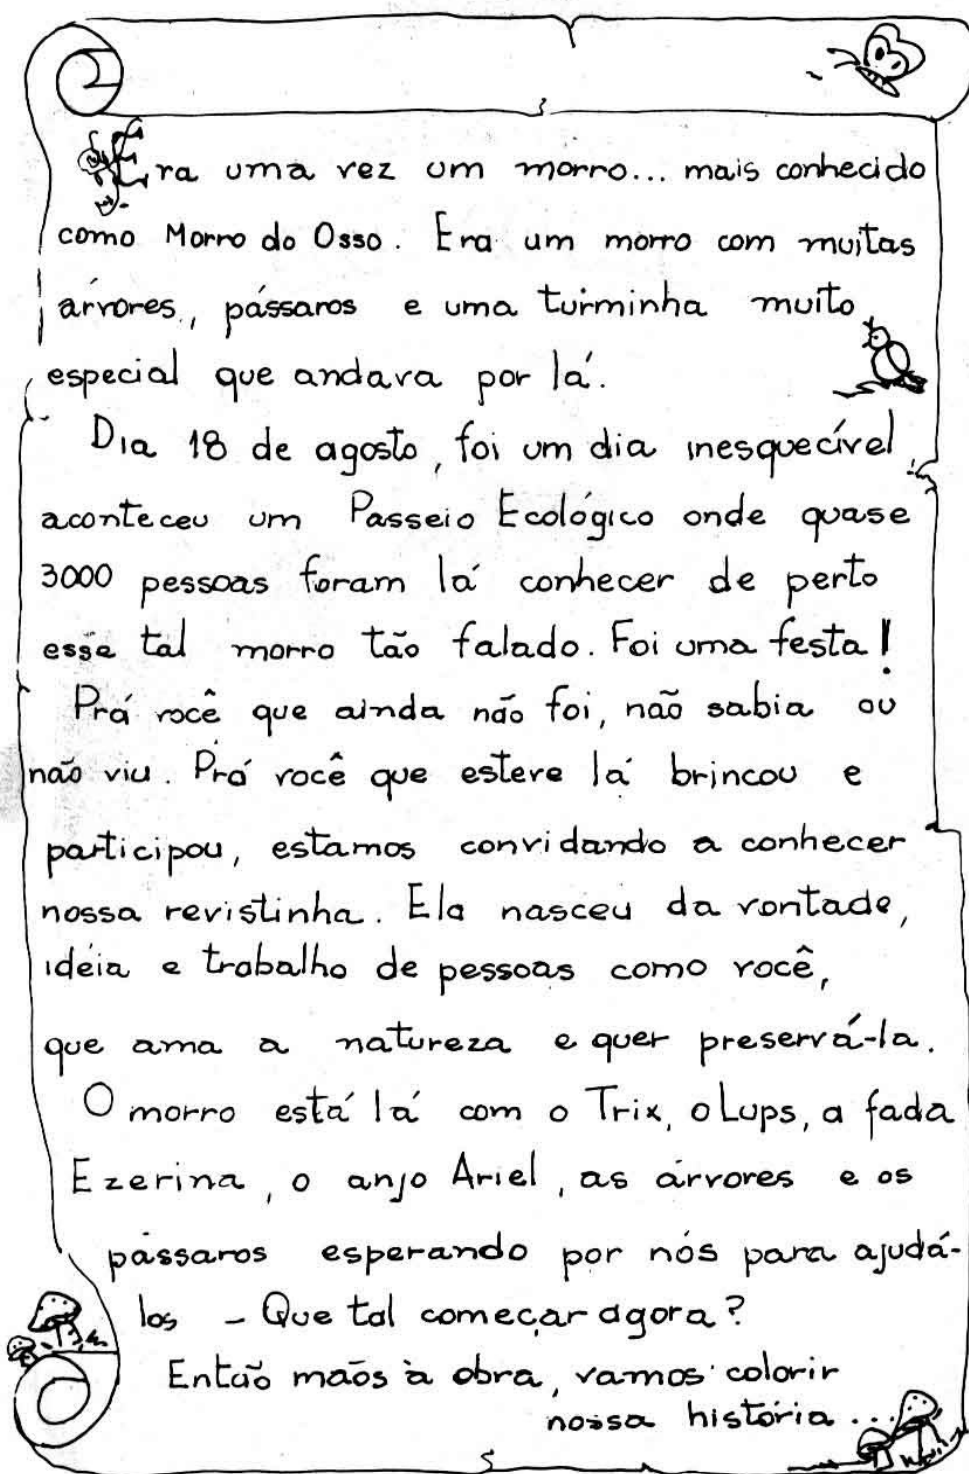 Era uma vez um morro... mais conhecido
como Morro do Osso. Era um morro com muitas
árvores, pássaros e uma turminha muito
especial que andava por lá.
Dia 18 de agosto, foi um dia inesquecível,
aconteceu um Passeio Ecológico onde quase
3000 pessoas foram lá conhecer de perto
esse tal morro tão falado. Foi uma festa!
Prá você que ainda não foi, não sabia ou
não viu. Prá você que esteve lá brincou e
participou, estamos convidando a conhecer
nossa revistinha. Ela nasceu da vontade,
idéia e trabalho de pessoas como você,
que ama a natureza e quer preservá-la.
O morro está lá com o Trix, o Lups, a fada
Ezerina, o anjo Ariel, as árvores e os
pássaros esperando por nós para ajudá-
los - Que tal começar agora?
Então mãos à obra, vamos colorir
nossa história...